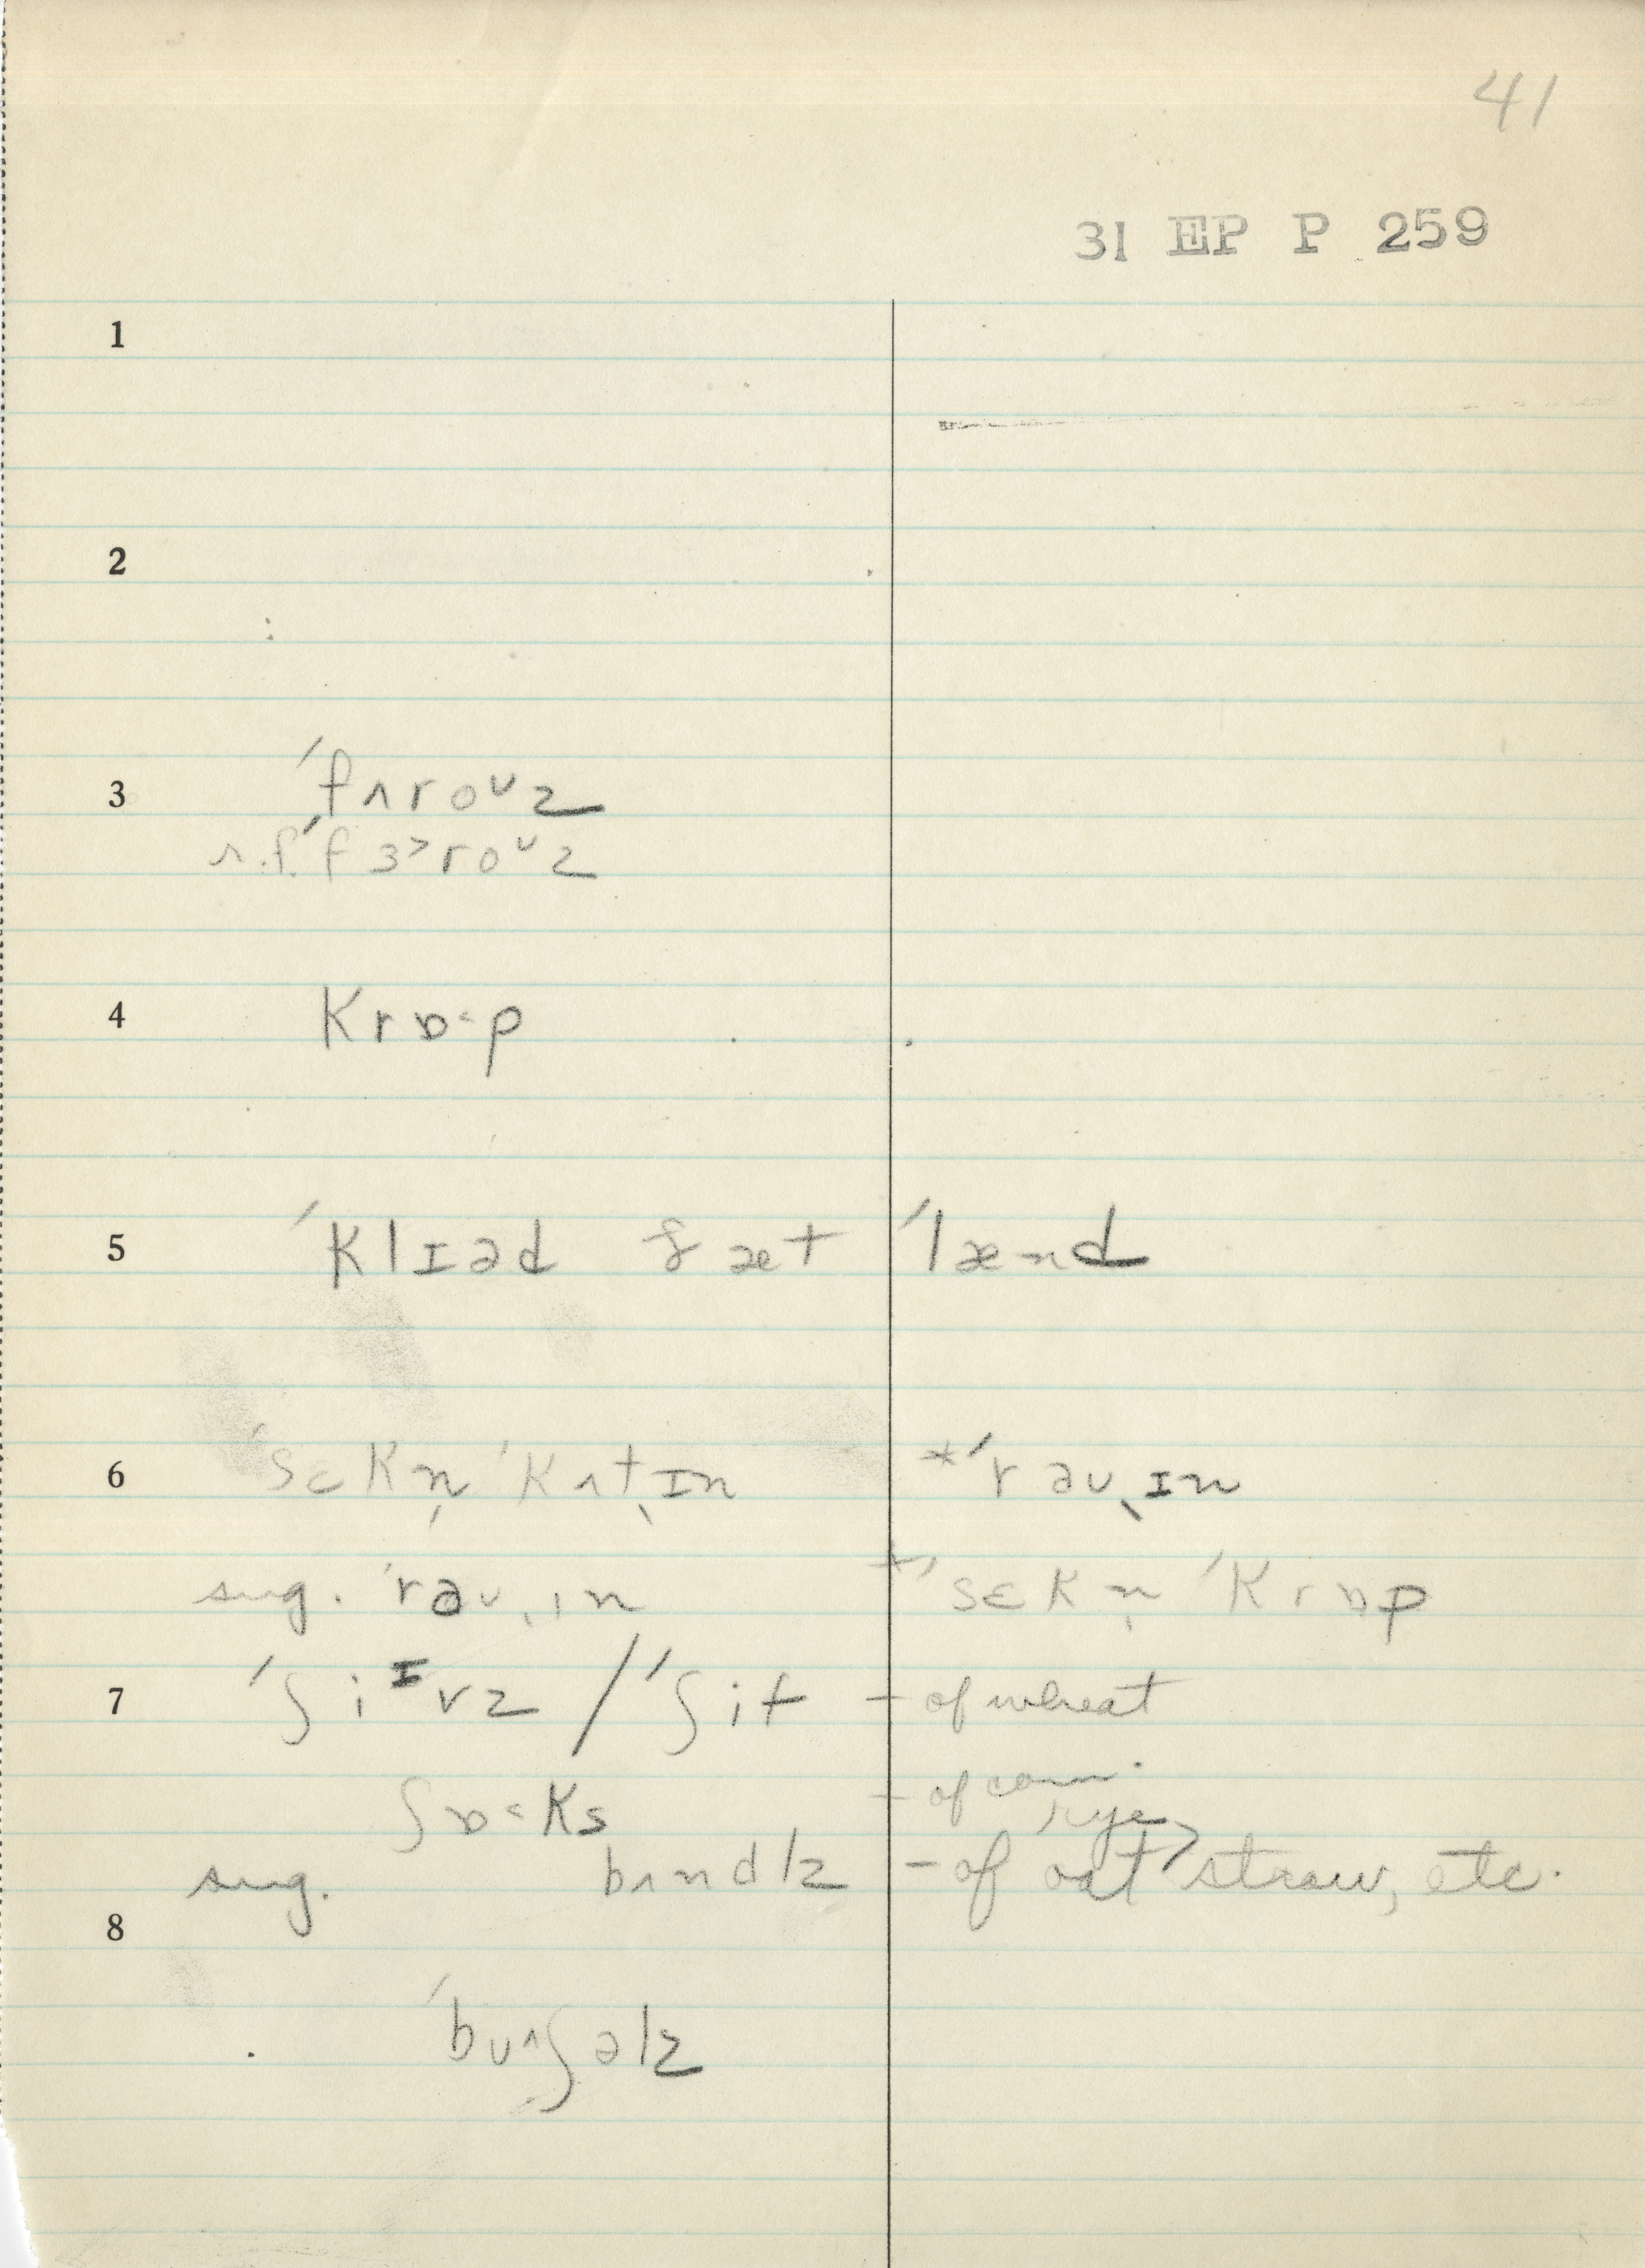 41
31 EP P 259
1
2
3 ˈfʌroᴜz
r.f. ˈfɜ˃roᴜz
4 krɒ˂p
5 ˈklɪəd ðæt ˈlænd
6 ˈsɛkn̩ ˈkʌt̬ˌɪn *ˈrəʊˌɪn
sug. ˈrəʊˌɪn +ˈsɛkn̩ ˈkrɒp
7 ˈʃiᶦvz / ˈʃif - of wheat
ʃɒ˂ks - of corn.
rye
sug. bʌndlz - of oat > straw, etc.
8
ˈbᴜ^ʃəlz